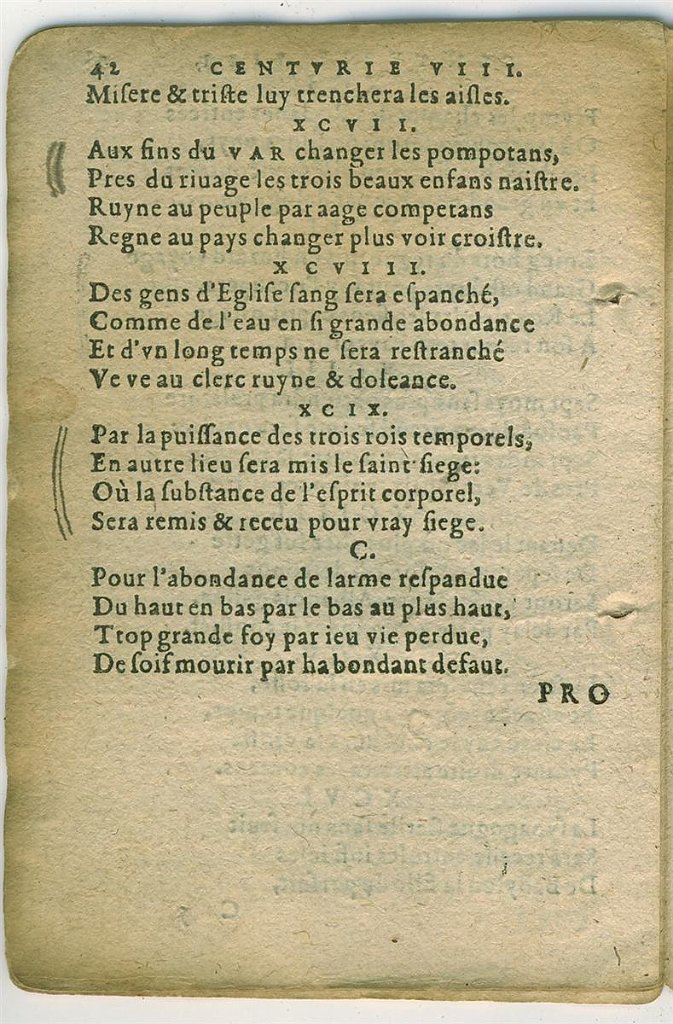 42 CENTVRIE VIII.
Miſere & triſte luy trenchera les aiſles.
XCVII.
Aux fins du VAR changer les pompotans,
Pres du riuage les trois beaux enfans naiſtre.
Ruyne au peuple par aage competans
Regne au pays changer plus voir croiſtre.
XCVIII.
Des gens d'Egliſe ſang ſera eſpanché,
Comme de l'eau en ſi grande abondance
Et d'vn long temps ne ſera reſtranché
Ve ve au clerc ruyne & doleance.
XCIX.
Par la puiſſance des trois rois temporels,
En autre lieu ſera mis le ſaint ſiege:
Où la ſubſtance de l'eſprit corporel,
Sera remis & receu pour vray ſiege.
C.
Pour l'abondance de larme reſpandue
Du haut en bas par le bas au plus haut,
Ttop grande foy par ieu vie perdue,
De ſoif mourir par habondant defaut.
PRO